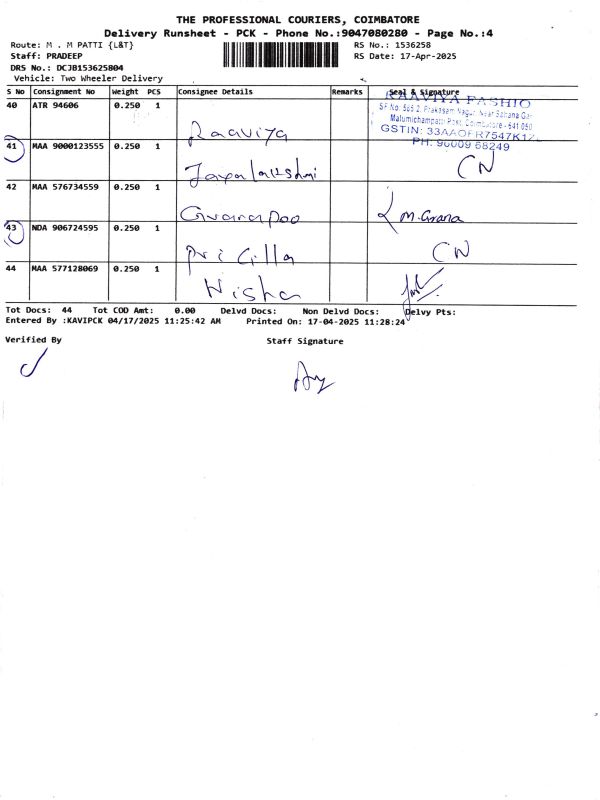 THE PROFESSIONAL COURIERS, COIMBATORE
Delivery Runsheet - PCK - Phone No.:9047080280 - Page No.:4
Route: M . M PATTI {L&T}
RS No.: 1536258
Staff: PRADEEP
RS Date: 17-Apr-2025
DRS No.: DCJB153625804
Vehicle: Two Wheeler Delivery
S No Consignment No Weight PCS Consignee Details Remarks Seal & Signature
40 ATR 94606 0.250 1 Raaviya
RAAVIYA FASHIO
SF.No: 565 2, Prakasam Nagar, Near Sahana Gar
Malumichampatti Post, Coimbatore - 641 050
GSTIN: 33AAOFR7547K1Z
PH: 96009 68249
41 MAA 9000123555 0.250 1 Jayalakshmi CN
42 MAA 576734559 0.250 1 Gnanapoo M.Grana
43 NDA 906724595 0.250 1 Pri Cilla CN
44 MAA 577128069 0.250 1 Nisha
Tot Docs: 44 Tot COD Amt: 0.00 Delvd Docs: Non Delvd Docs: Delvy Pts:
Entered By :KAVIPCK 04/17/2025 11:25:42 AM Printed On: 17-04-2025 11:28:24
Verified By Staff Signature